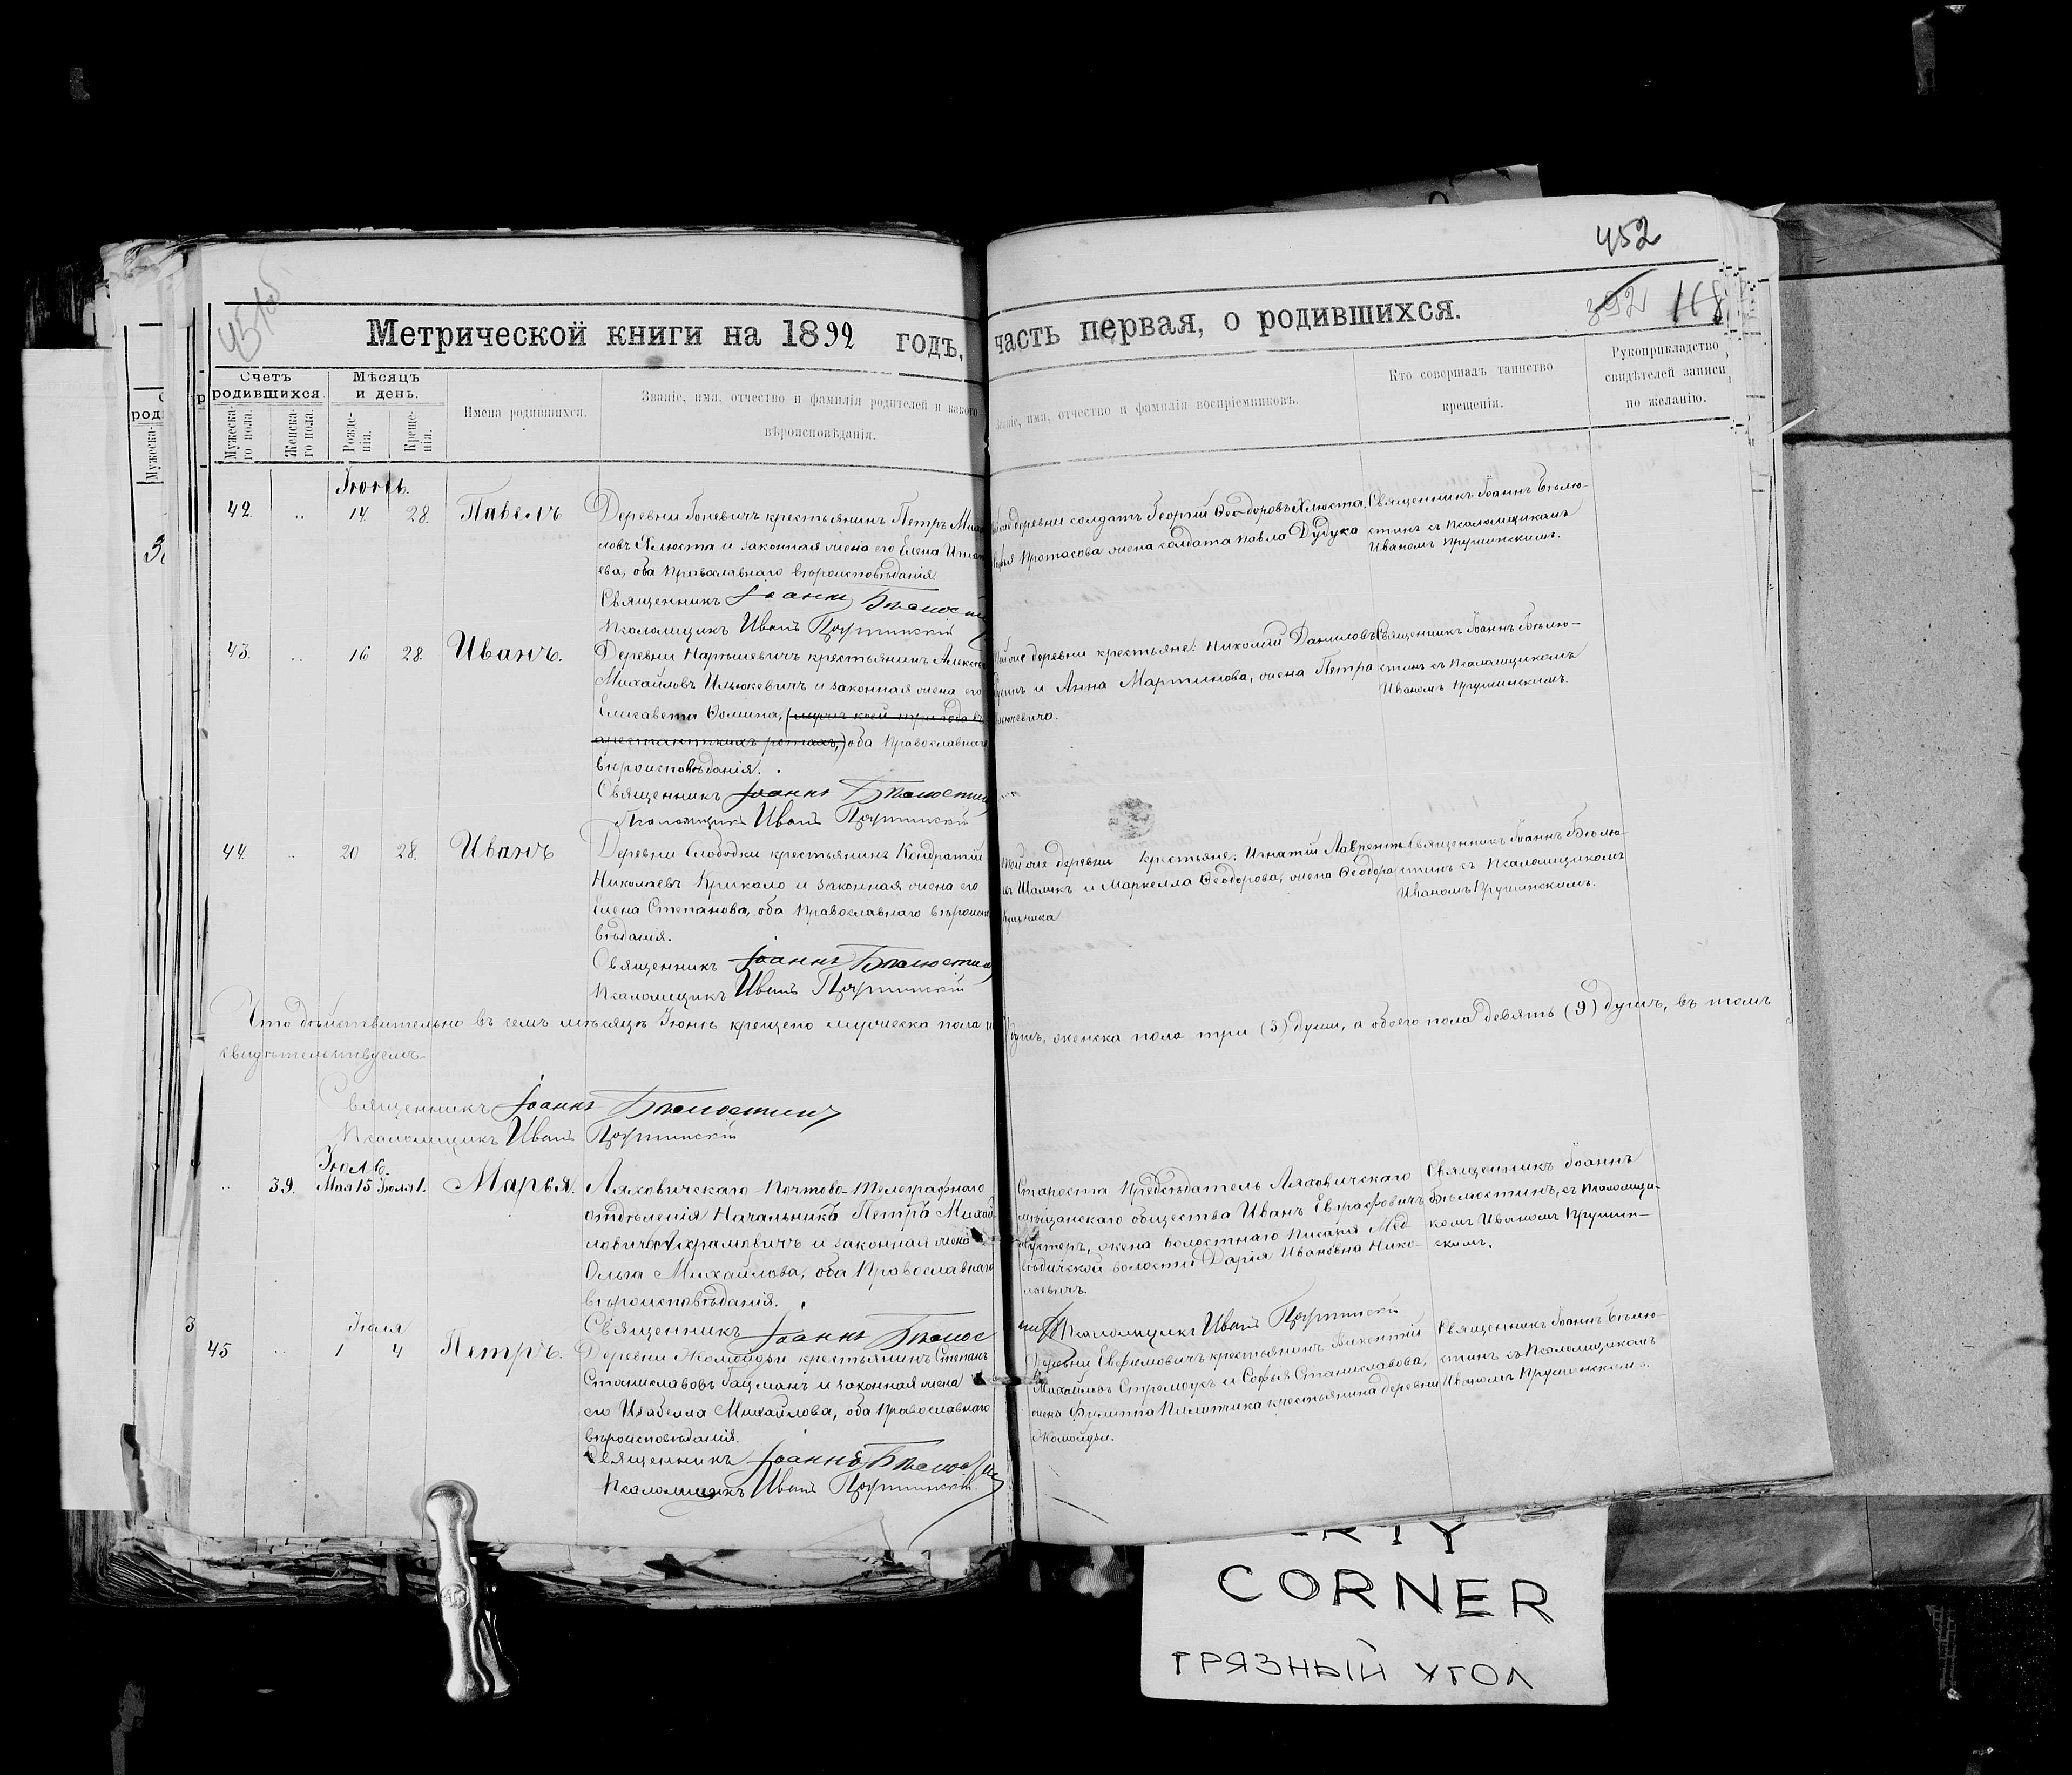 452
392 118
Метрической книги на 1892 годъ, часть первая, о родившихся.
Счетъ родившихся.
Мужеска-го пола.
Женска-го пола.
Мѣсяцъ и день.
Рожде-нія.
Креще-нія.
Имена родившихся.
Званіе, имя, отчество и фамилія родителей и какого
вѣроисповѣданія.
Званіе, имя, отчество и фамилія воспріемниковъ.
Кто совершалъ таинство
крещенія.
Рукоприкладство
свидѣтелей записи
по желанію.
Іюнь.
42. 14. 28. Павелъ
Деревни Гоневичъ крестьянинъ Петръ
ловъ Хлюста и законная жена его Елена
ева, оба Православнаго вѣроисповѣданія
Священникъ Іоаннъ
Псаломщикъ Иванъ Прушинскій
деревни солдатъ Георгій Ѳеодоровъ Хлюста,
Протасова жена солдата Павла Дудука
Священникъ Іоаннъ Бѣлю-
стинъ съ Псаломщикомъ
Иваномъ Прушинскимъ.
43. 16 28. Иванъ.
Деревни Нарышевичъ крестьянинъ
Михайловъ Ильюкевичъ и законная жена его
Елисавета Ѳомина, (мужъ коей три года въ
арестантскихъ ротахъ,) оба Православнаго
вѣроисповѣданія.
Священникъ Іоаннъ Бѣлюстинъ
Псаломщикъ Иванъ Прушинскій
деревни крестьяне: Николай Даниловъ
и Анна Мартинова, жена Петра
Священникъ Іоаннъ Бѣлю-
стинъ съ Псаломщикомъ
Иваномъ Прушинскимъ.
44. 20 28. Иванъ
Деревни Слободки крестьянинъ Кондратій
Николаевъ Крикало и законная жена его
Елена Степанова, оба Православнаго вѣроиспо
вѣданія.
Священникъ Іоаннъ Бѣлюстинъ
Псаломщикъ Иванъ Прушинскій
Той же деревни крестьяне: Игнатій Лаврентъ
въ Шамикъ и Маркелла Ѳеодорова, жена Ѳеодора
Священникъ Іоаннъ Бѣлю-
стинъ съ Псаломщикомъ
Иваномъ Прушинскимъ.
Что дѣйствительно въ семъ мѣсяцѣ Іюнѣ крещено мужеска пола душъ, женска пола три (3) души, а обоего пола девять (9) душъ, въ томъ
свидѣтельствуемъ.
Священникъ Іоаннъ Бѣлюстинъ
Псаломщикъ Иванъ Прушинскій
Іюль.
39. Мая 15 Іюля 1. Марья.
Ляховичскаго Почтово-Телеграфнаго
отдѣленія Начальника Петра Михай
ловича Ахрамовичъ и законная жена
Ольга Михайлова, оба Православнаго
вѣроисповѣданія.
Священникъ Іоаннъ Бѣлюс
Староста Предсѣдатель Ляховичскаго
мѣщанскаго общества Иванъ Евграфовичъ
жена волостнаго писаря Мед
вѣдичской волости Дарія Ивановна Нико-
лаевичъ.
Псаломщикъ Иванъ Прушинскій
Священникъ Іоаннъ
Бѣлюстинъ, съ Псаломщи-
комъ Иваномъ Прушин-
скимъ.
Іюля
45 1 4 Петръ.
Деревни Жомойдзи крестьянинъ Степанъ
Станиславовъ Гацманъ и законная жена
его Изабелла Михайлова, оба Православнаго
вѣроисповѣданія.
Священникъ Іоаннъ
Псаломщикъ Иванъ Прушинскій
Деревни Евфимовичъ крестьянинъ Викентій
Михайловъ Стремоукъ и Софія Станиславова,
жена Филиппа крестьянина деревни
Жомойдзи.
Священникъ Іоаннъ Бѣлю-
стинъ съ Псаломщикомъ
Иваномъ Прушинскимъ.
CORNER
ГРЯЗНЫЙ УГОЛ